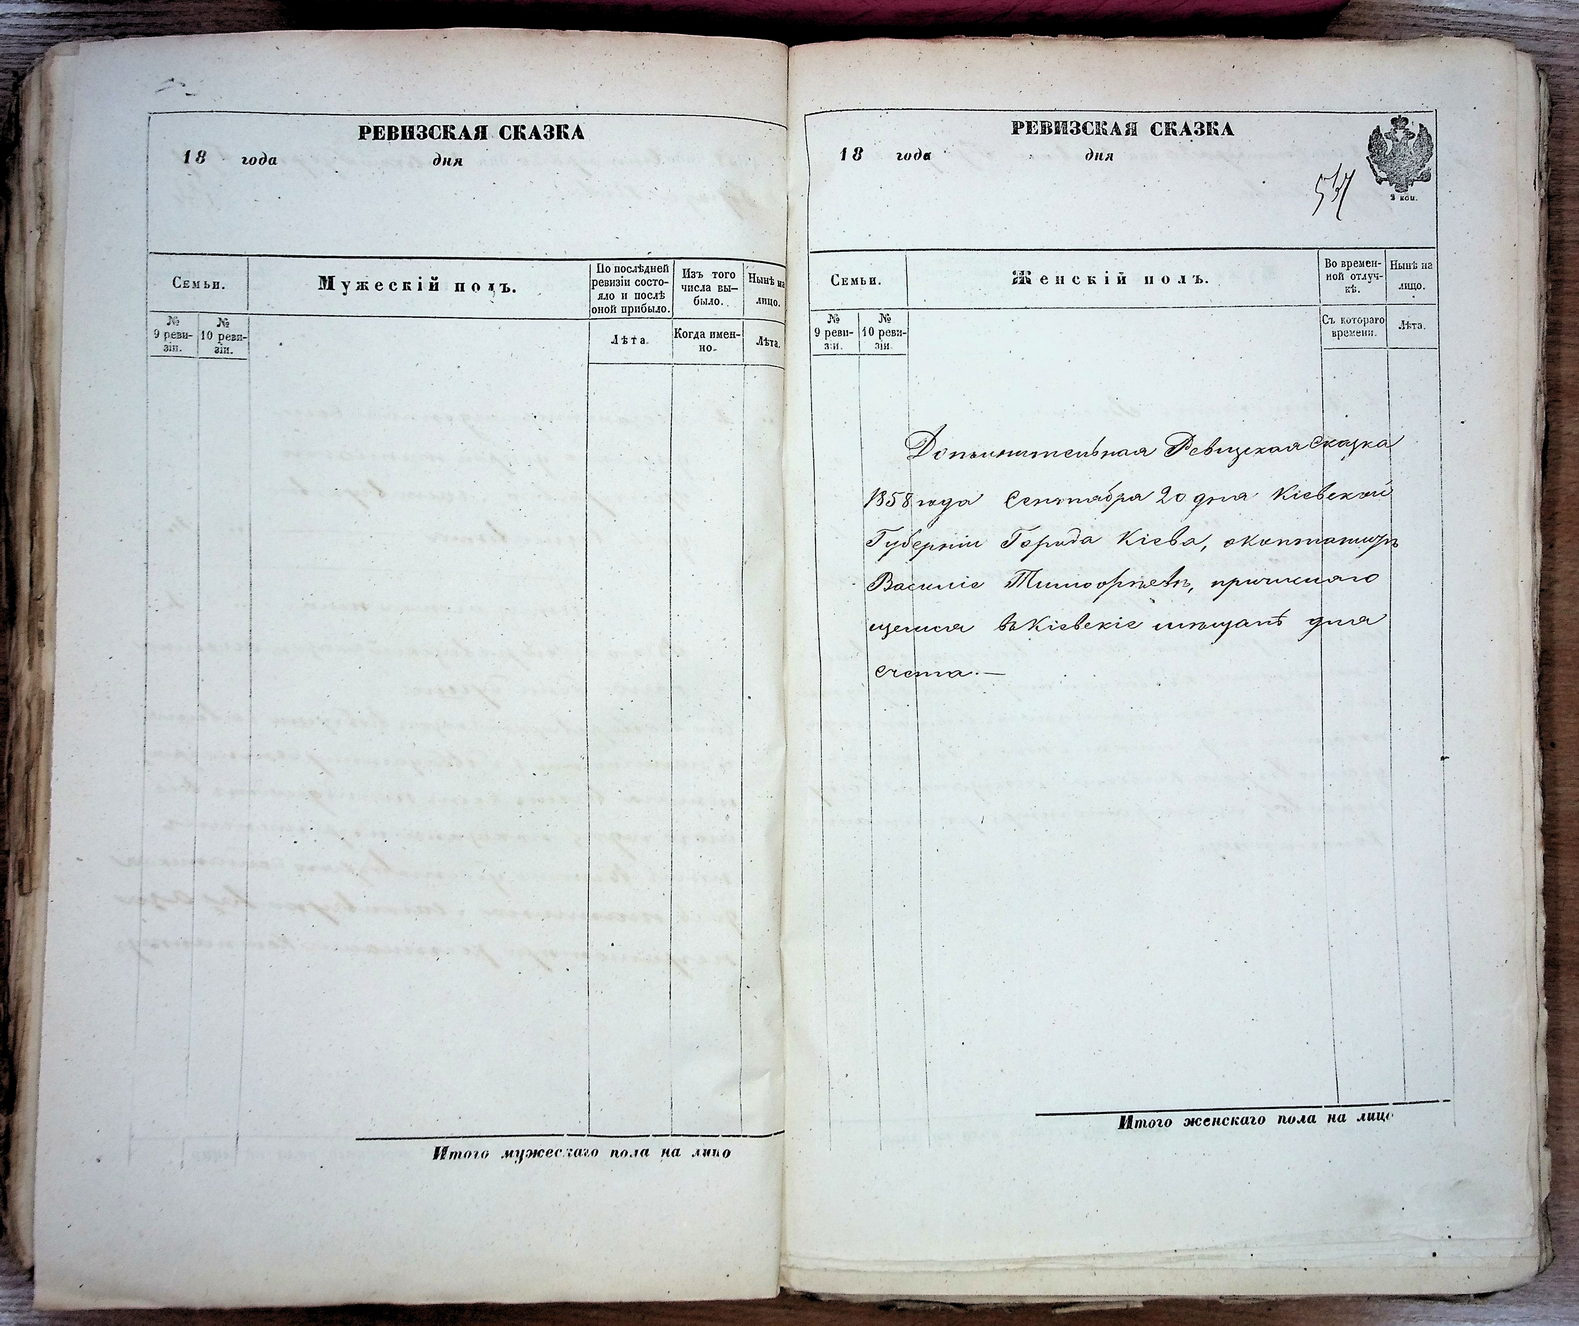 РЕВИЗСКАЯ СКАЗКА
18 года дня
Семьи.
Мужескій полъ.
По послѣдней ревизіи состояло и послѣ оной прибыло.
Изъ того числа выбыло.
Нынѣ на лицо.
№ 9 ревизіи.
№ 10 ревизіи.
Лѣта.
Когда именно.
Лѣта.
Итого мужескаго пола на лицо
РЕВИЗСКАЯ СКАЗКА
18 года дня
2 коп.
537
Семьи.
Женскій полъ.
Во временной отлучкѣ.
Нынѣ на лицо.
№ 9 ревизіи.
№ 10 ревизіи.
Съ котораго времени.
Лѣта.
Дополнительная Ревизская Сказка
1858 года Сентября 20 дня Кіевской
Губерніи Города Кіева,
Василіе Тимофѣевѣ, причисляю
щемся въ Кіевскіе мѣщане для
счета.—
Итого женскаго пола на лицо